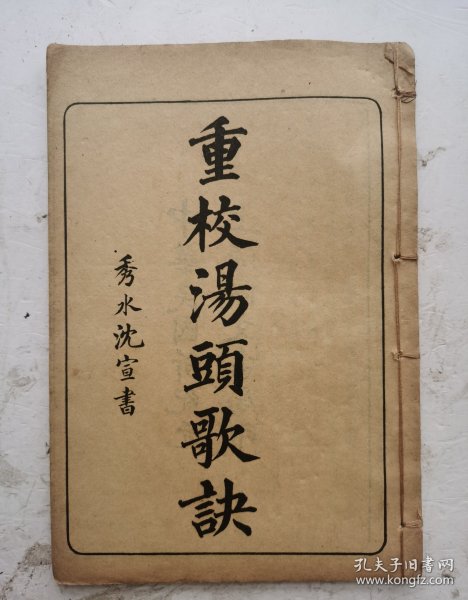 重校湯頭歌訣
秀水沈宣書
孔夫子旧书网
www.kongfz.com